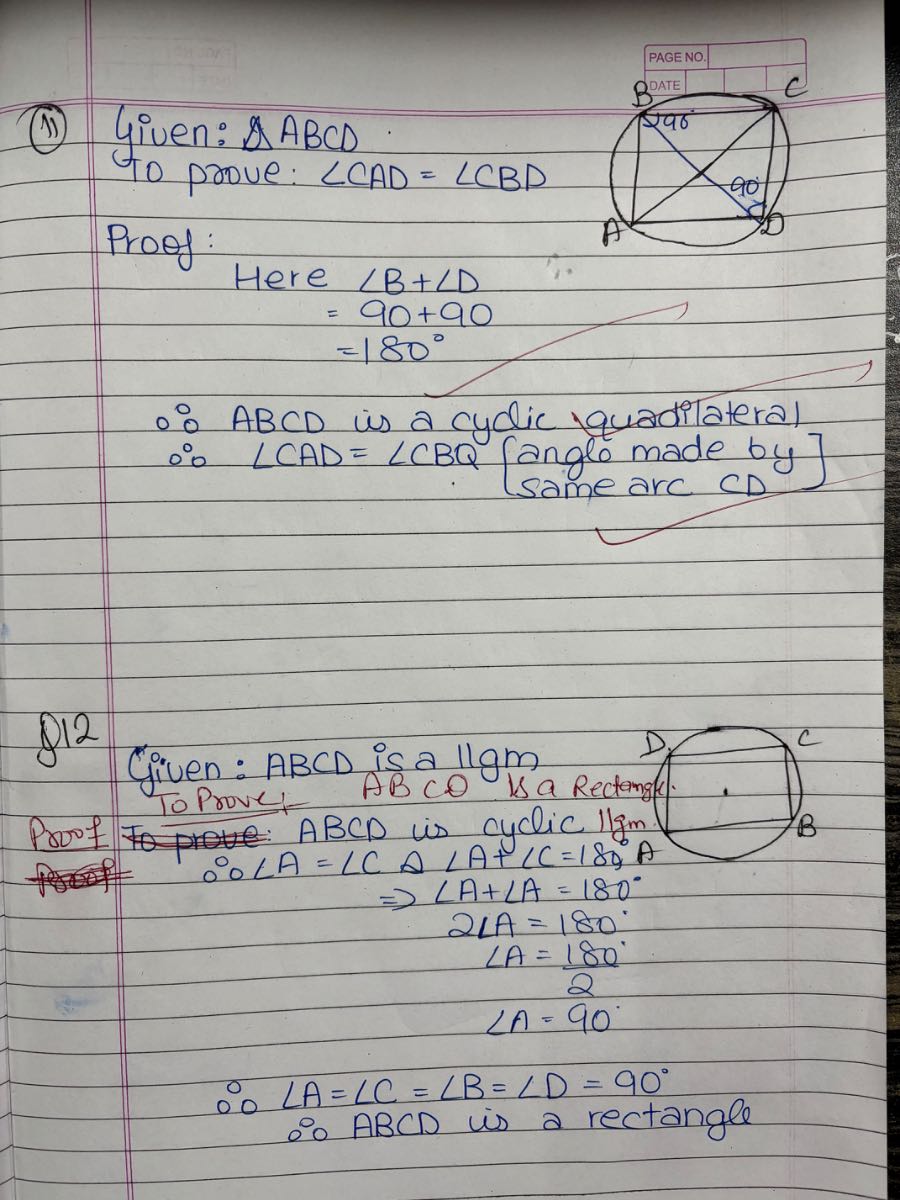 PAGE NO.
DATE
B C
90°
90°
A D
11
Given: ABCD
To prove: ∠CAD = ∠CBD
Proof:
Here ∠B+∠D
= 90+90
=180°
∴ ABCD is a cyclic quadilateral
∴ ∠CAD = ∠CBQ [angle made by
same arc CD]
Q12
D C
Given: ABCD is a ||gm
To Prove: ABCD Is a Rectangle.
Proof To prove: ABCD is cyclic ||gm.
B
Proof ∴ ∠A = ∠C & ∠A+∠C=180°
A
=> ∠A+∠A = 180°
2∠A = 180°
∠A = 180°
2
∠A = 90°
∴ ∠A=∠C = ∠B= ∠D = 90°
∴ ABCD is a rectangle